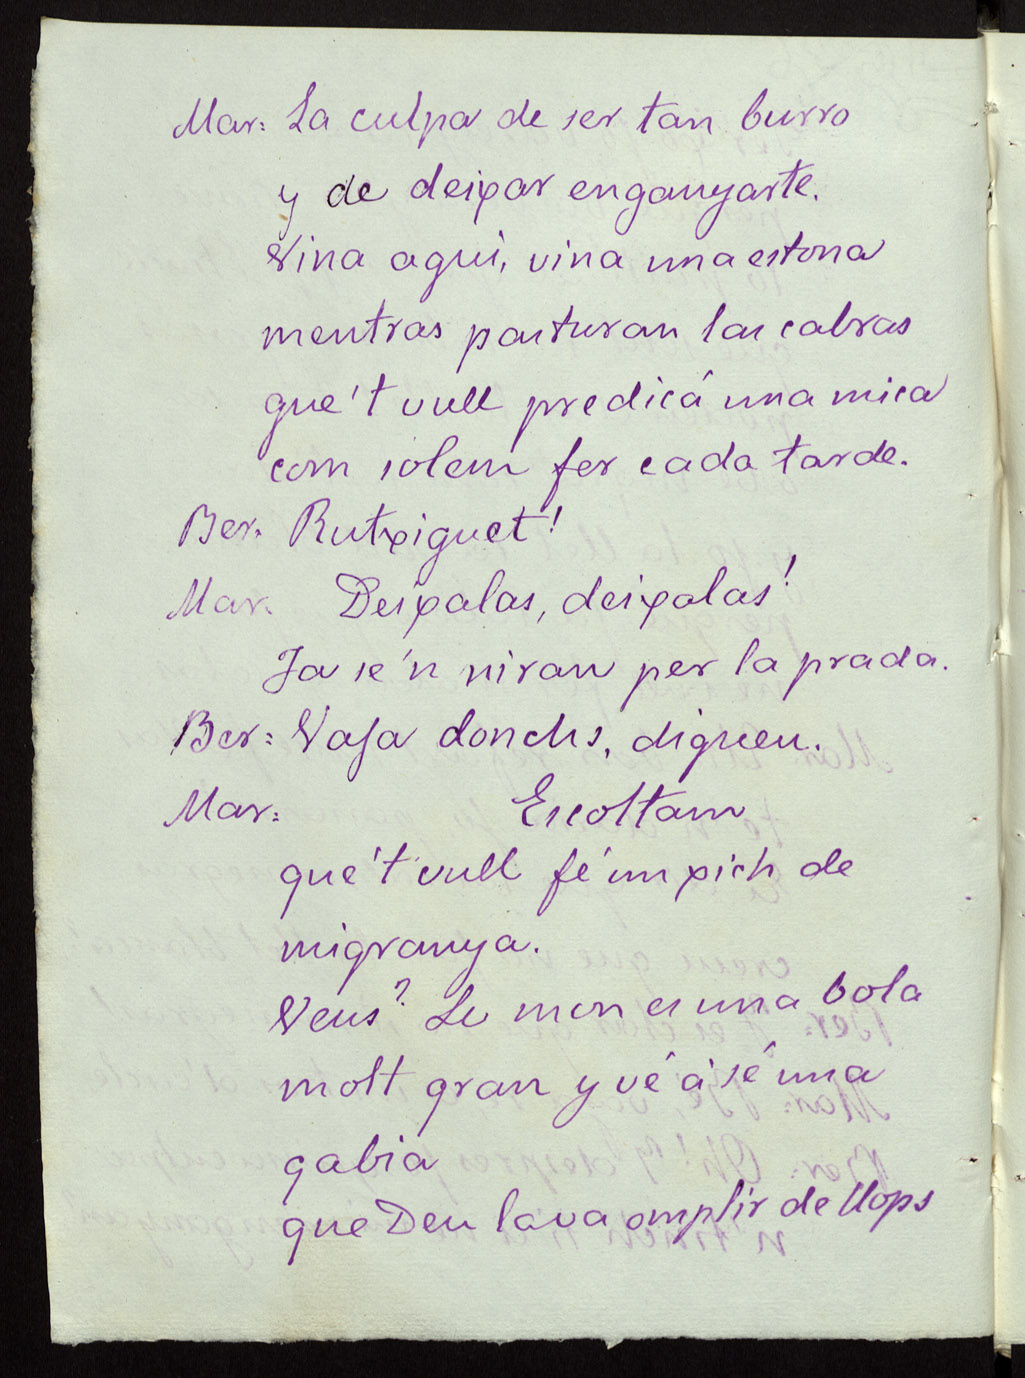 Mar: La culpa de ser tan burro
y de deixar enganyarte.
Vina aquí, vina una estona
mentras pasturan las cabras
que 't vull predicá una mica
com solem fer cada tarde.
Ber. Rutxiguet!
Mar. Deixalas, deixalas!
Ja se'n niran per la prada.
Ber: Vaja donchs, digueu.
Mar: Escoltam
que't vull fé un xich de
migranya.
Veus? Lo mon es una bola
molt gran y vé á sé una
gabia
que Deu la va omplir de llops